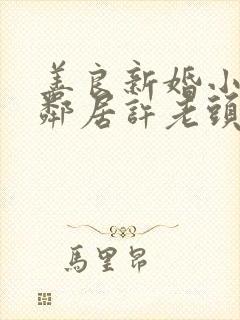 羊良新婚小
鄰居許老頭
馬里昂